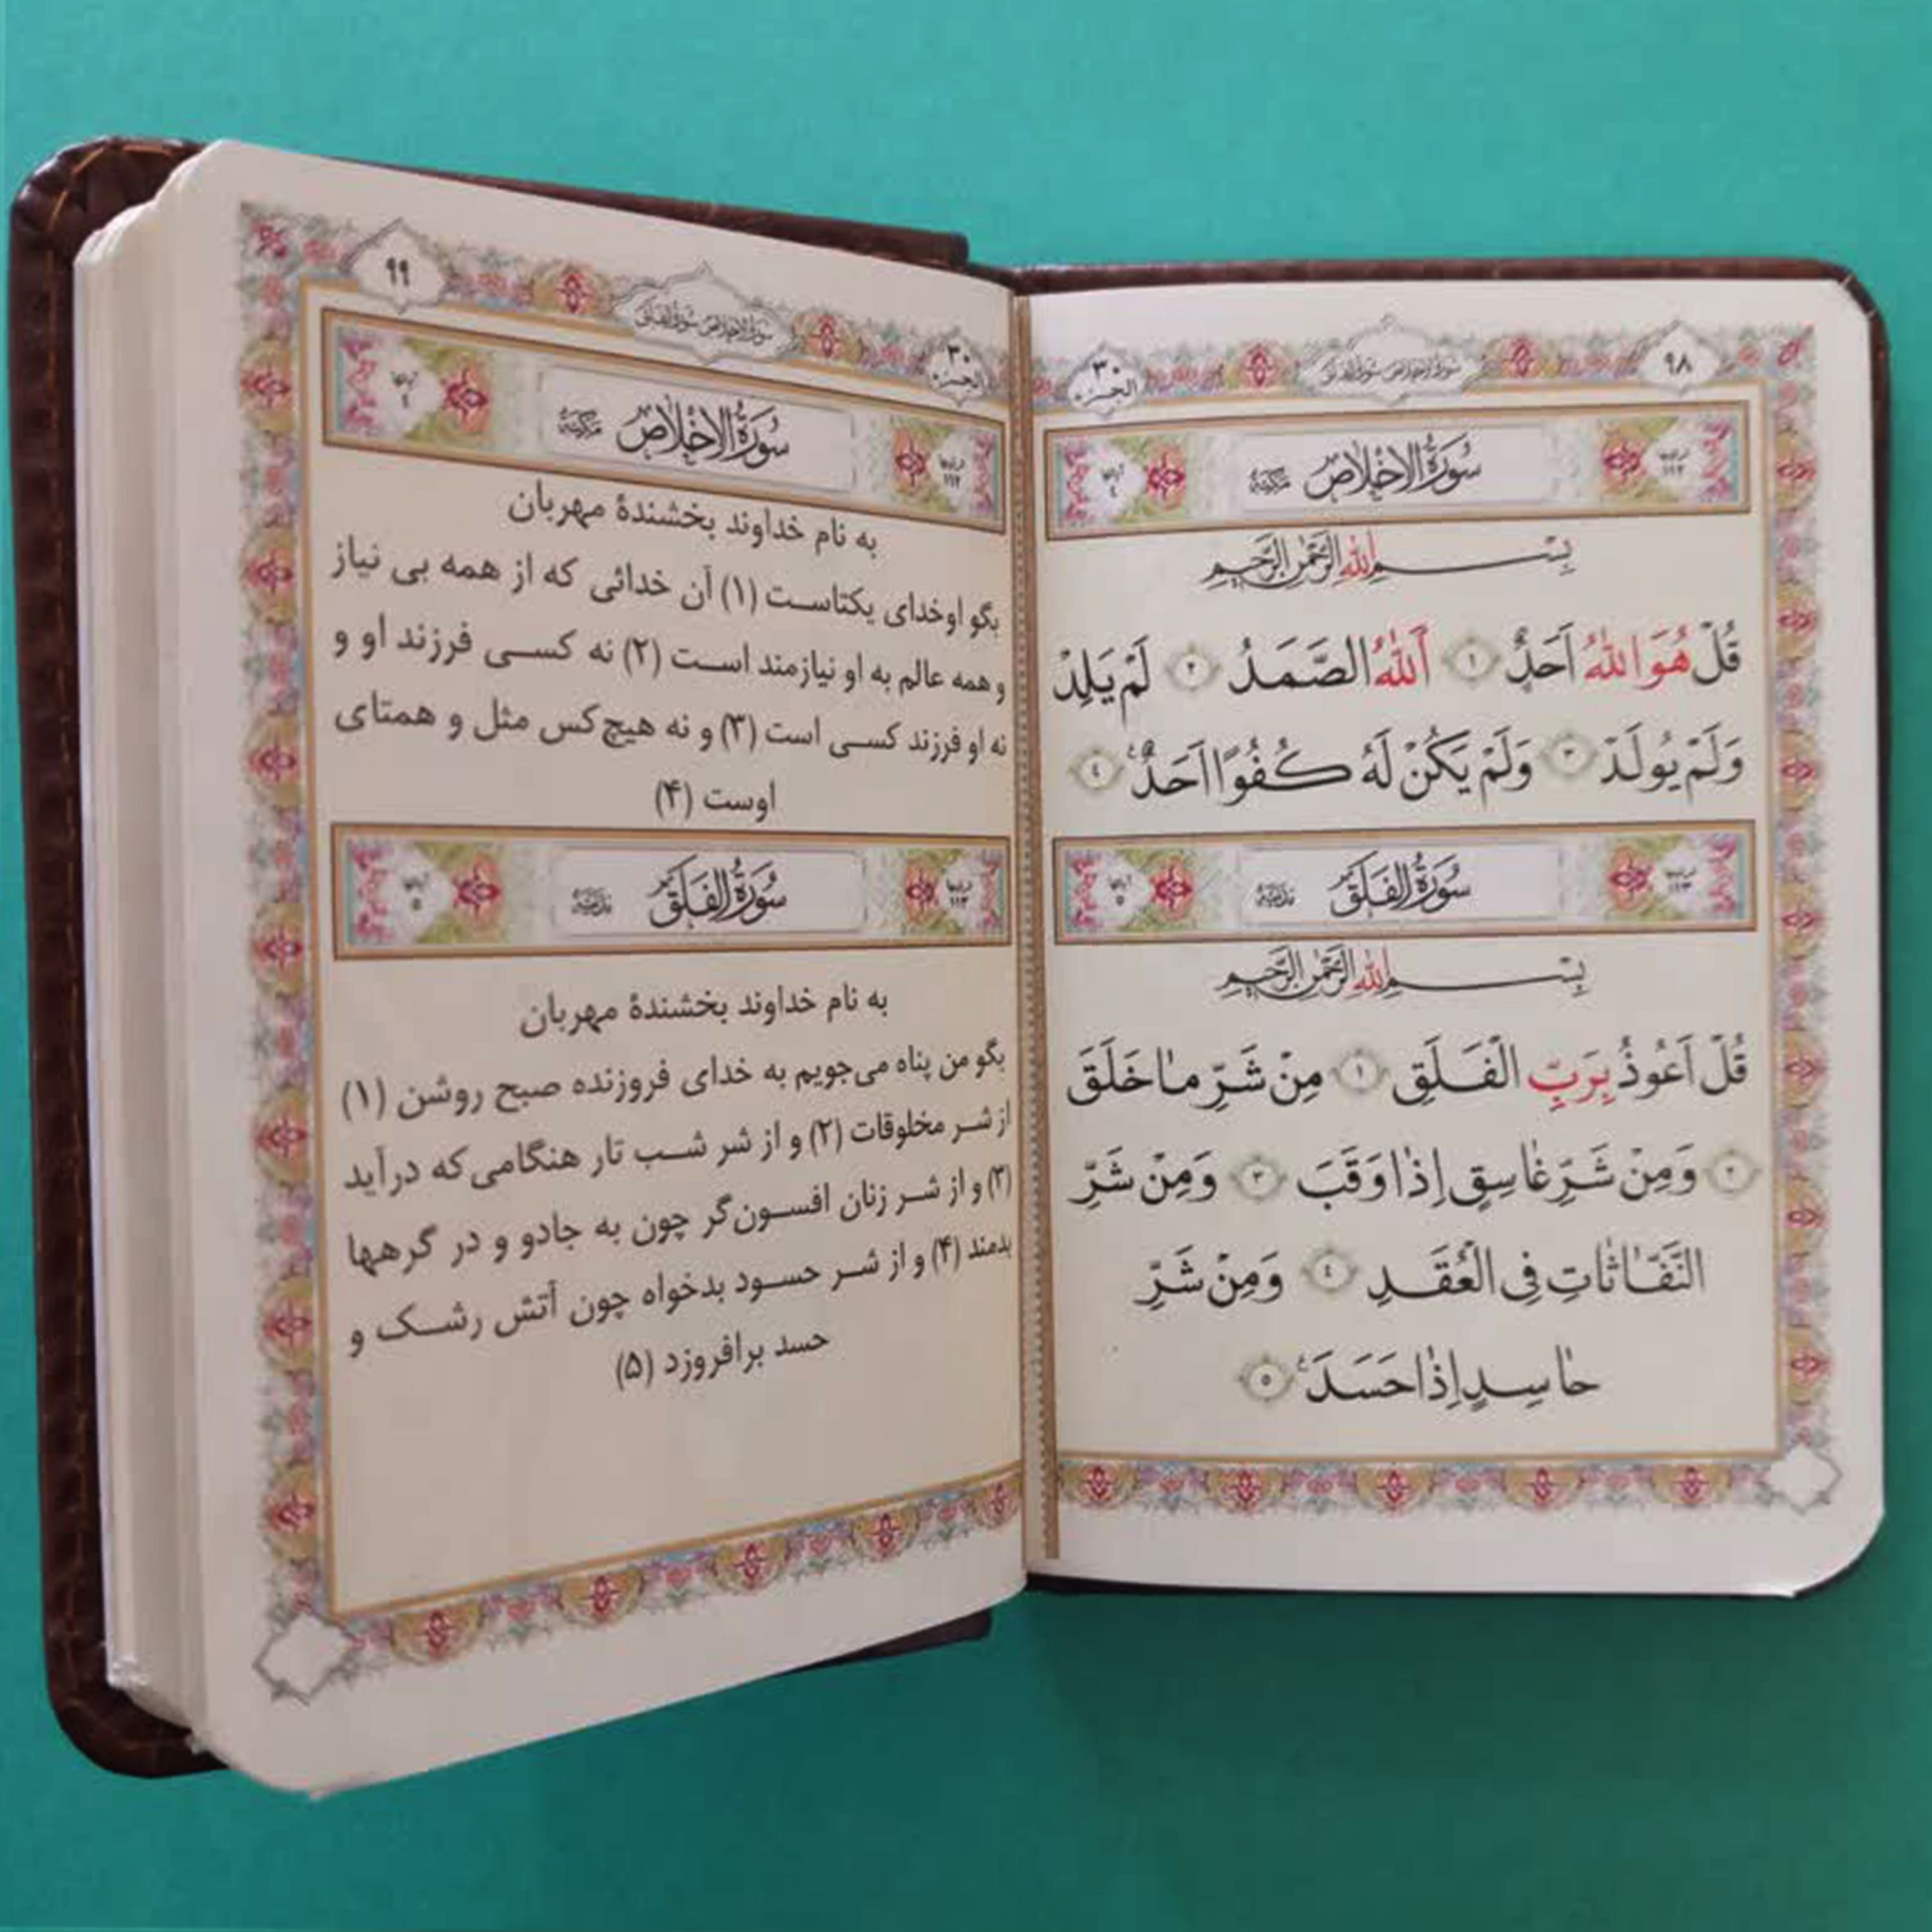 ۹۸
سورة الاخلاص سورة الفلق
۳۰
الجزء
سُورَةُ الاِخْلاص مَكِّيَّة
۱۱۲
٤
بِسْمِ اللهِ الرَّحْمٰنِ الرَّحِيمِ
قُلْ هُوَ اللهُ اَحَدٌ ١ اَللهُ الصَّمَدُ ٢ لَمْ يَلِدْ
وَلَمْ يُولَدْ ٣ وَلَمْ يَكُنْ لَهُ كُفُوًا اَحَدٌ ٤
سُورَةُ الفَلَق مَدَنِيَّة
۱۱۳
۵
بِسْمِ اللهِ الرَّحْمٰنِ الرَّحِيمِ
قُلْ اَعُوذُ بِرَبِّ الْفَلَقِ ١ مِنْ شَرِّ مٰا خَلَقَ
٢ وَمِنْ شَرِّ غٰاسِقٍ اِذٰا وَقَبَ ٣ وَمِنْ شَرِّ
النَّفّٰاثٰاتِ فِى الْعُقَدِ ٤ وَمِنْ شَرِّ
حٰاسِدٍ اِذٰا حَسَدَ ٥
۹۹
سورة الاخلاص سورة الفلق
۳۰
الجزء
سُورَةُ الاِخْلاص مَكِّيَّة
۱۱۲
٤
به نام خداوند بخشندهٔ مهربان
بگو او خدای یکتاست (۱) آن خدائی که از همه بی نیاز
و همه عالم به او نیازمند است (۲) نه کسی فرزند او و
نه او فرزند کسی است (۳) و نه هیچ‌کس مثل و همتای
اوست (۴)
سُورَةُ الفَلَق مَدَنِيَّة
۱۱۳
۵
به نام خداوند بخشندهٔ مهربان
بگو من پناه می‌جویم به خدای فروزنده صبح روشن (۱)
از شر مخلوقات (۲) و از شر شب تار هنگامی‌که درآید
(۳) و از شر زنان افسون‌گر چون به جادو و در گرهها
بدمند (۴) و از شر حسود بدخواه چون آتش رشک و
حسد برافروزد (۵)